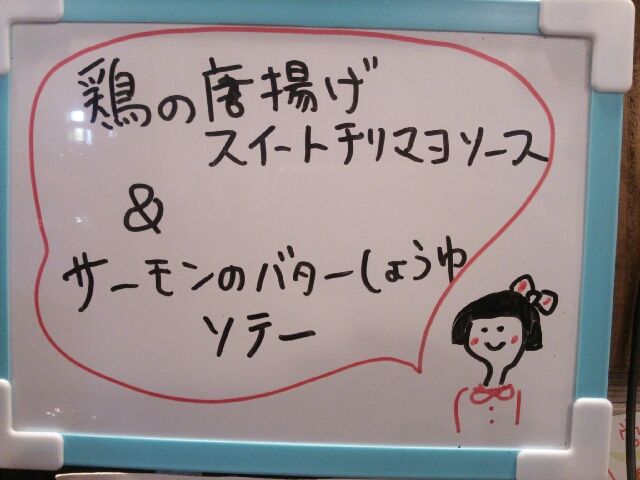 鶏の唐揚げ
スイートチリマヨソース
&
サーモンのバターしょうゆ
ソテー